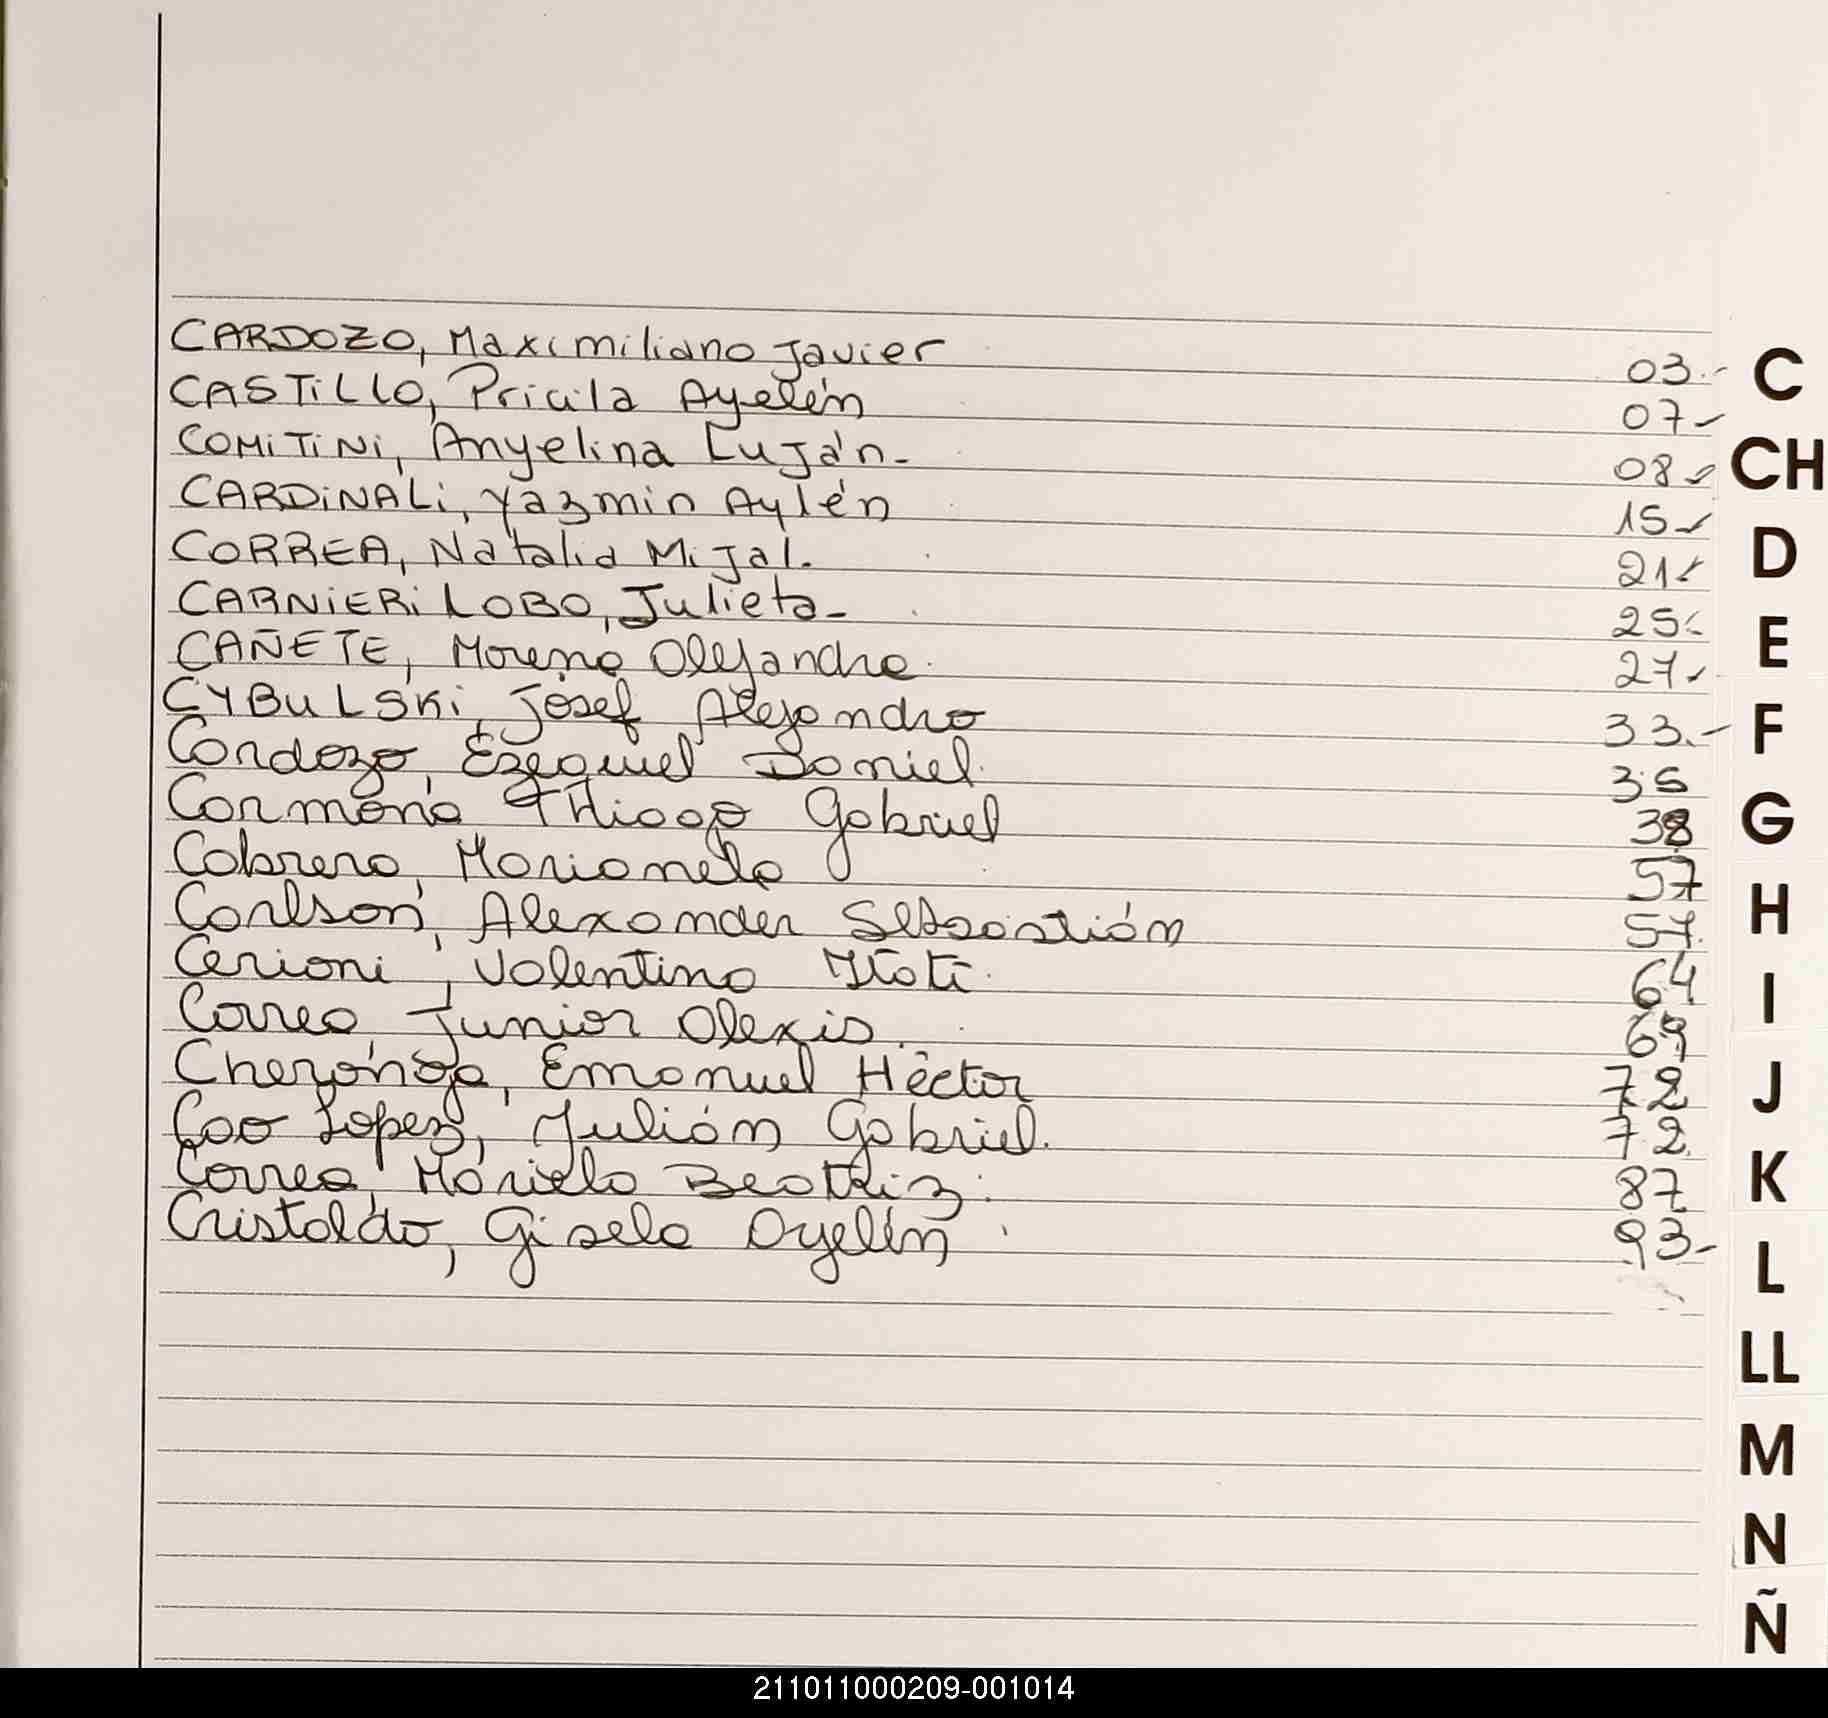 CARDOZO, Maximiliano Javier 03.-
CASTILLO, Pricila Ayelén 07-
COMITINI, Anyelina Luján- 08-
CARDINALI, Yazmin Aylén 15-
CORREA, Natalia Mijal. 21-
CARNIERI LOBO, Julieta- 25-
CAÑETE, Moreno Alejandro. 27-
CYBULSKI, Josef Alejandro 33.-
Cardozo, Ezequiel Daniel. 35
Carmona Thiago Gabriel 38
Cabrera, Marianela 57
Carlson, Alexander Sebastián 57.
Cerioni, Valentino 64
Correa, Junior Alexis. 69
Cheronga, Emanuel Héctor 72
Cao Lopez, Julián Gabriel. 72.
Correa, Mariela Beatriz. 87
Cristaldo, Gisela Ayelén 93-
C
CH
D
E
F
G
H
I
J
K
L
LL
M
N
Ñ
211011000209-001014